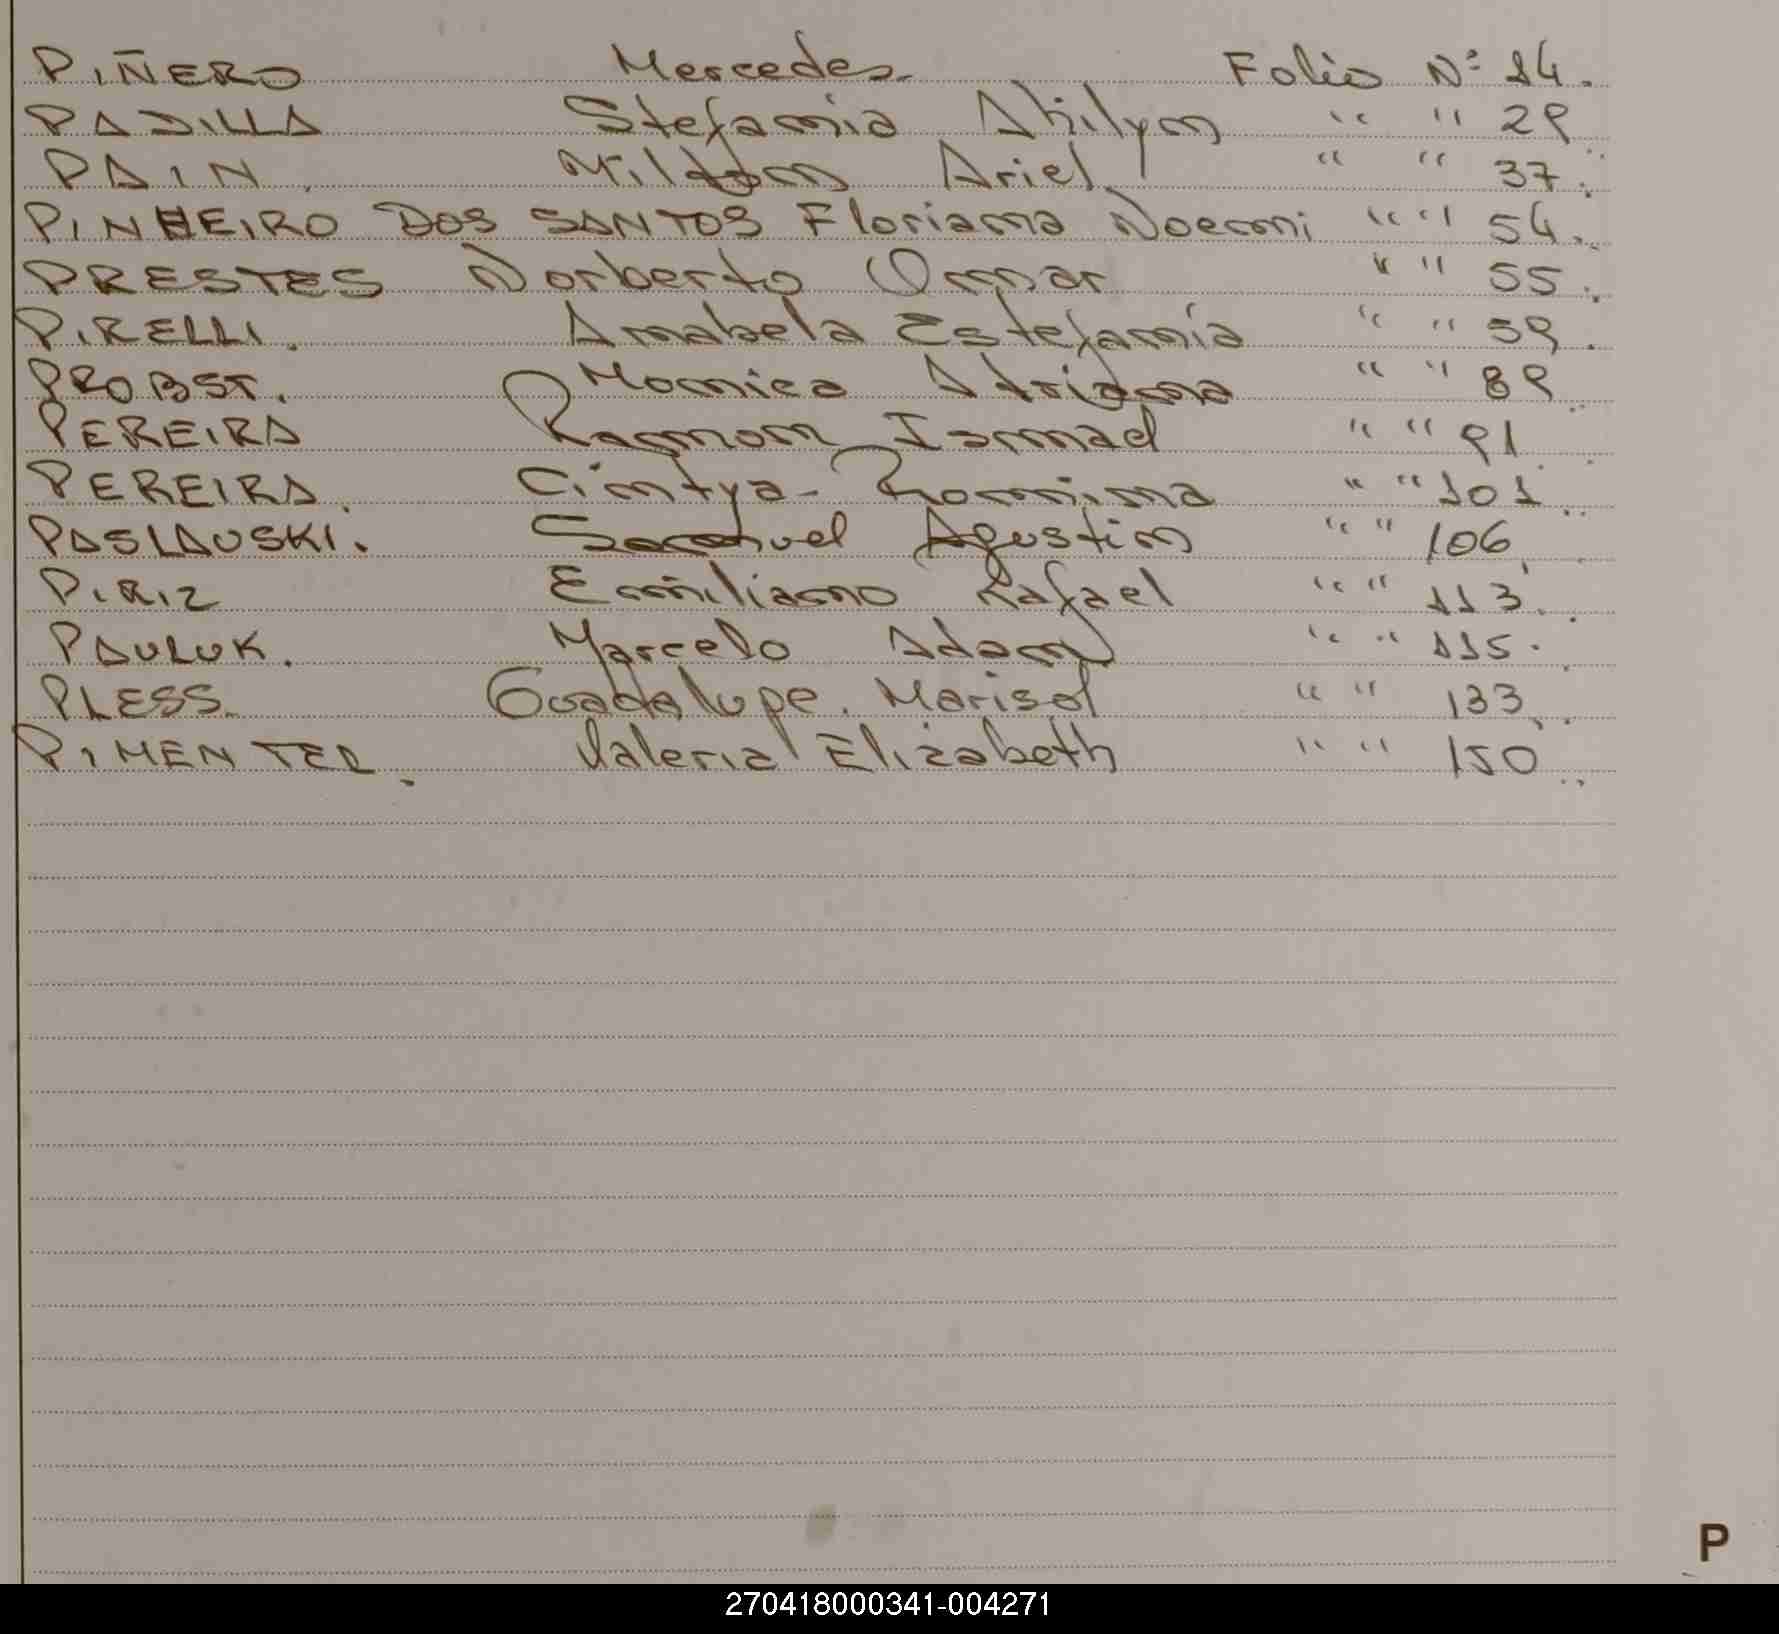 PIÑERO Mercedes Folio Nº 14.
PADILLA Stefania " " 29
PAIN. Milton Ariel " " 37.
PINHEIRO DOS SANTOS Floriana Noemi " " 54.
PRESTES Norberto Omar " " 55.
PIRELLI. Anabela Estefania " " 59.
PROBST. Monica Adriana " " 89
PEREIRA Ramon Ismael " " 91
PEREIRA. Cintya Romina " " 101
PASLAUSKI. Samuel Agustin " " 106
PIRIZ Emiliano Rafael " " 113.
PAULUK. Marcelo Adam " " 115.
PLESS. Guadalupe. Marisol " " 133
PIMENTEL. Valeria Elizabeth " " 150
P
270418000341-004271